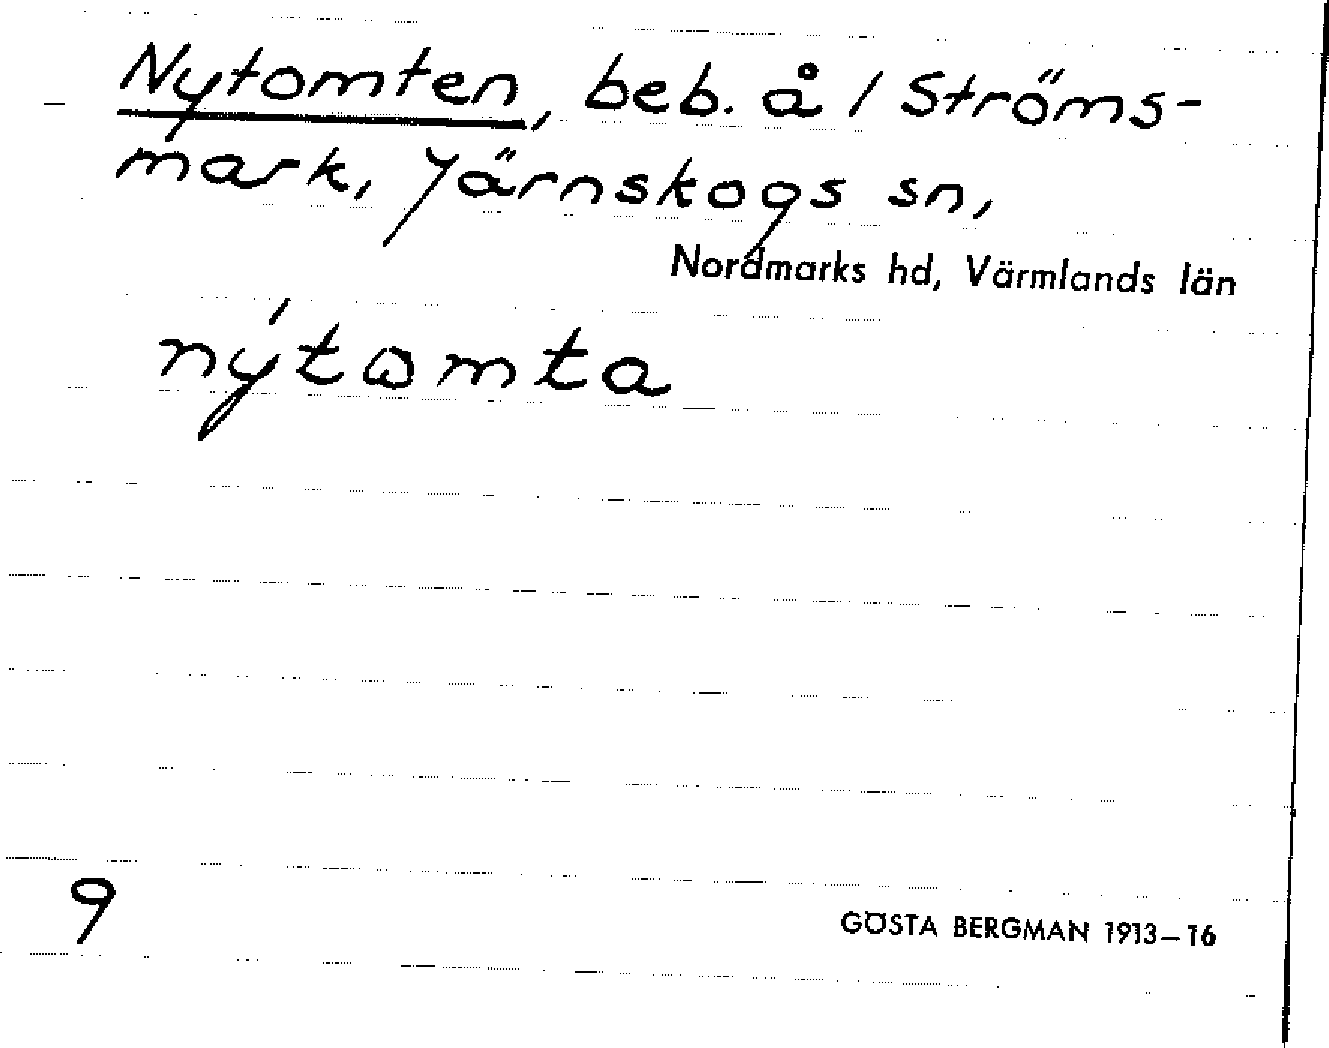 Nytomten, beb. å 1 Ströms-
mark, Järnskogs sn,
Nordmarks hd, Värmlands län
nýtωmta
9
GÖSTA BERGMAN 1913–16